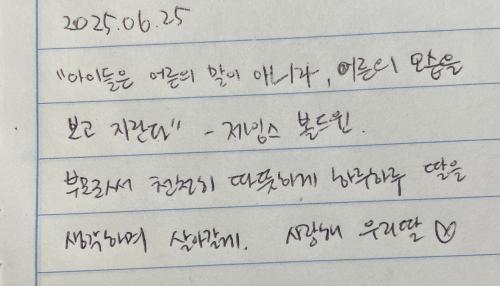 2025.06.25
"아이들은 어른의 말이 아니라, 어른의 모습을
보고 자란다" - 제임스 볼드윈.
부모로서 천천히 따뜻하게 하루하루 딸을
생각하며 살아갈게. 사랑해 우리딸